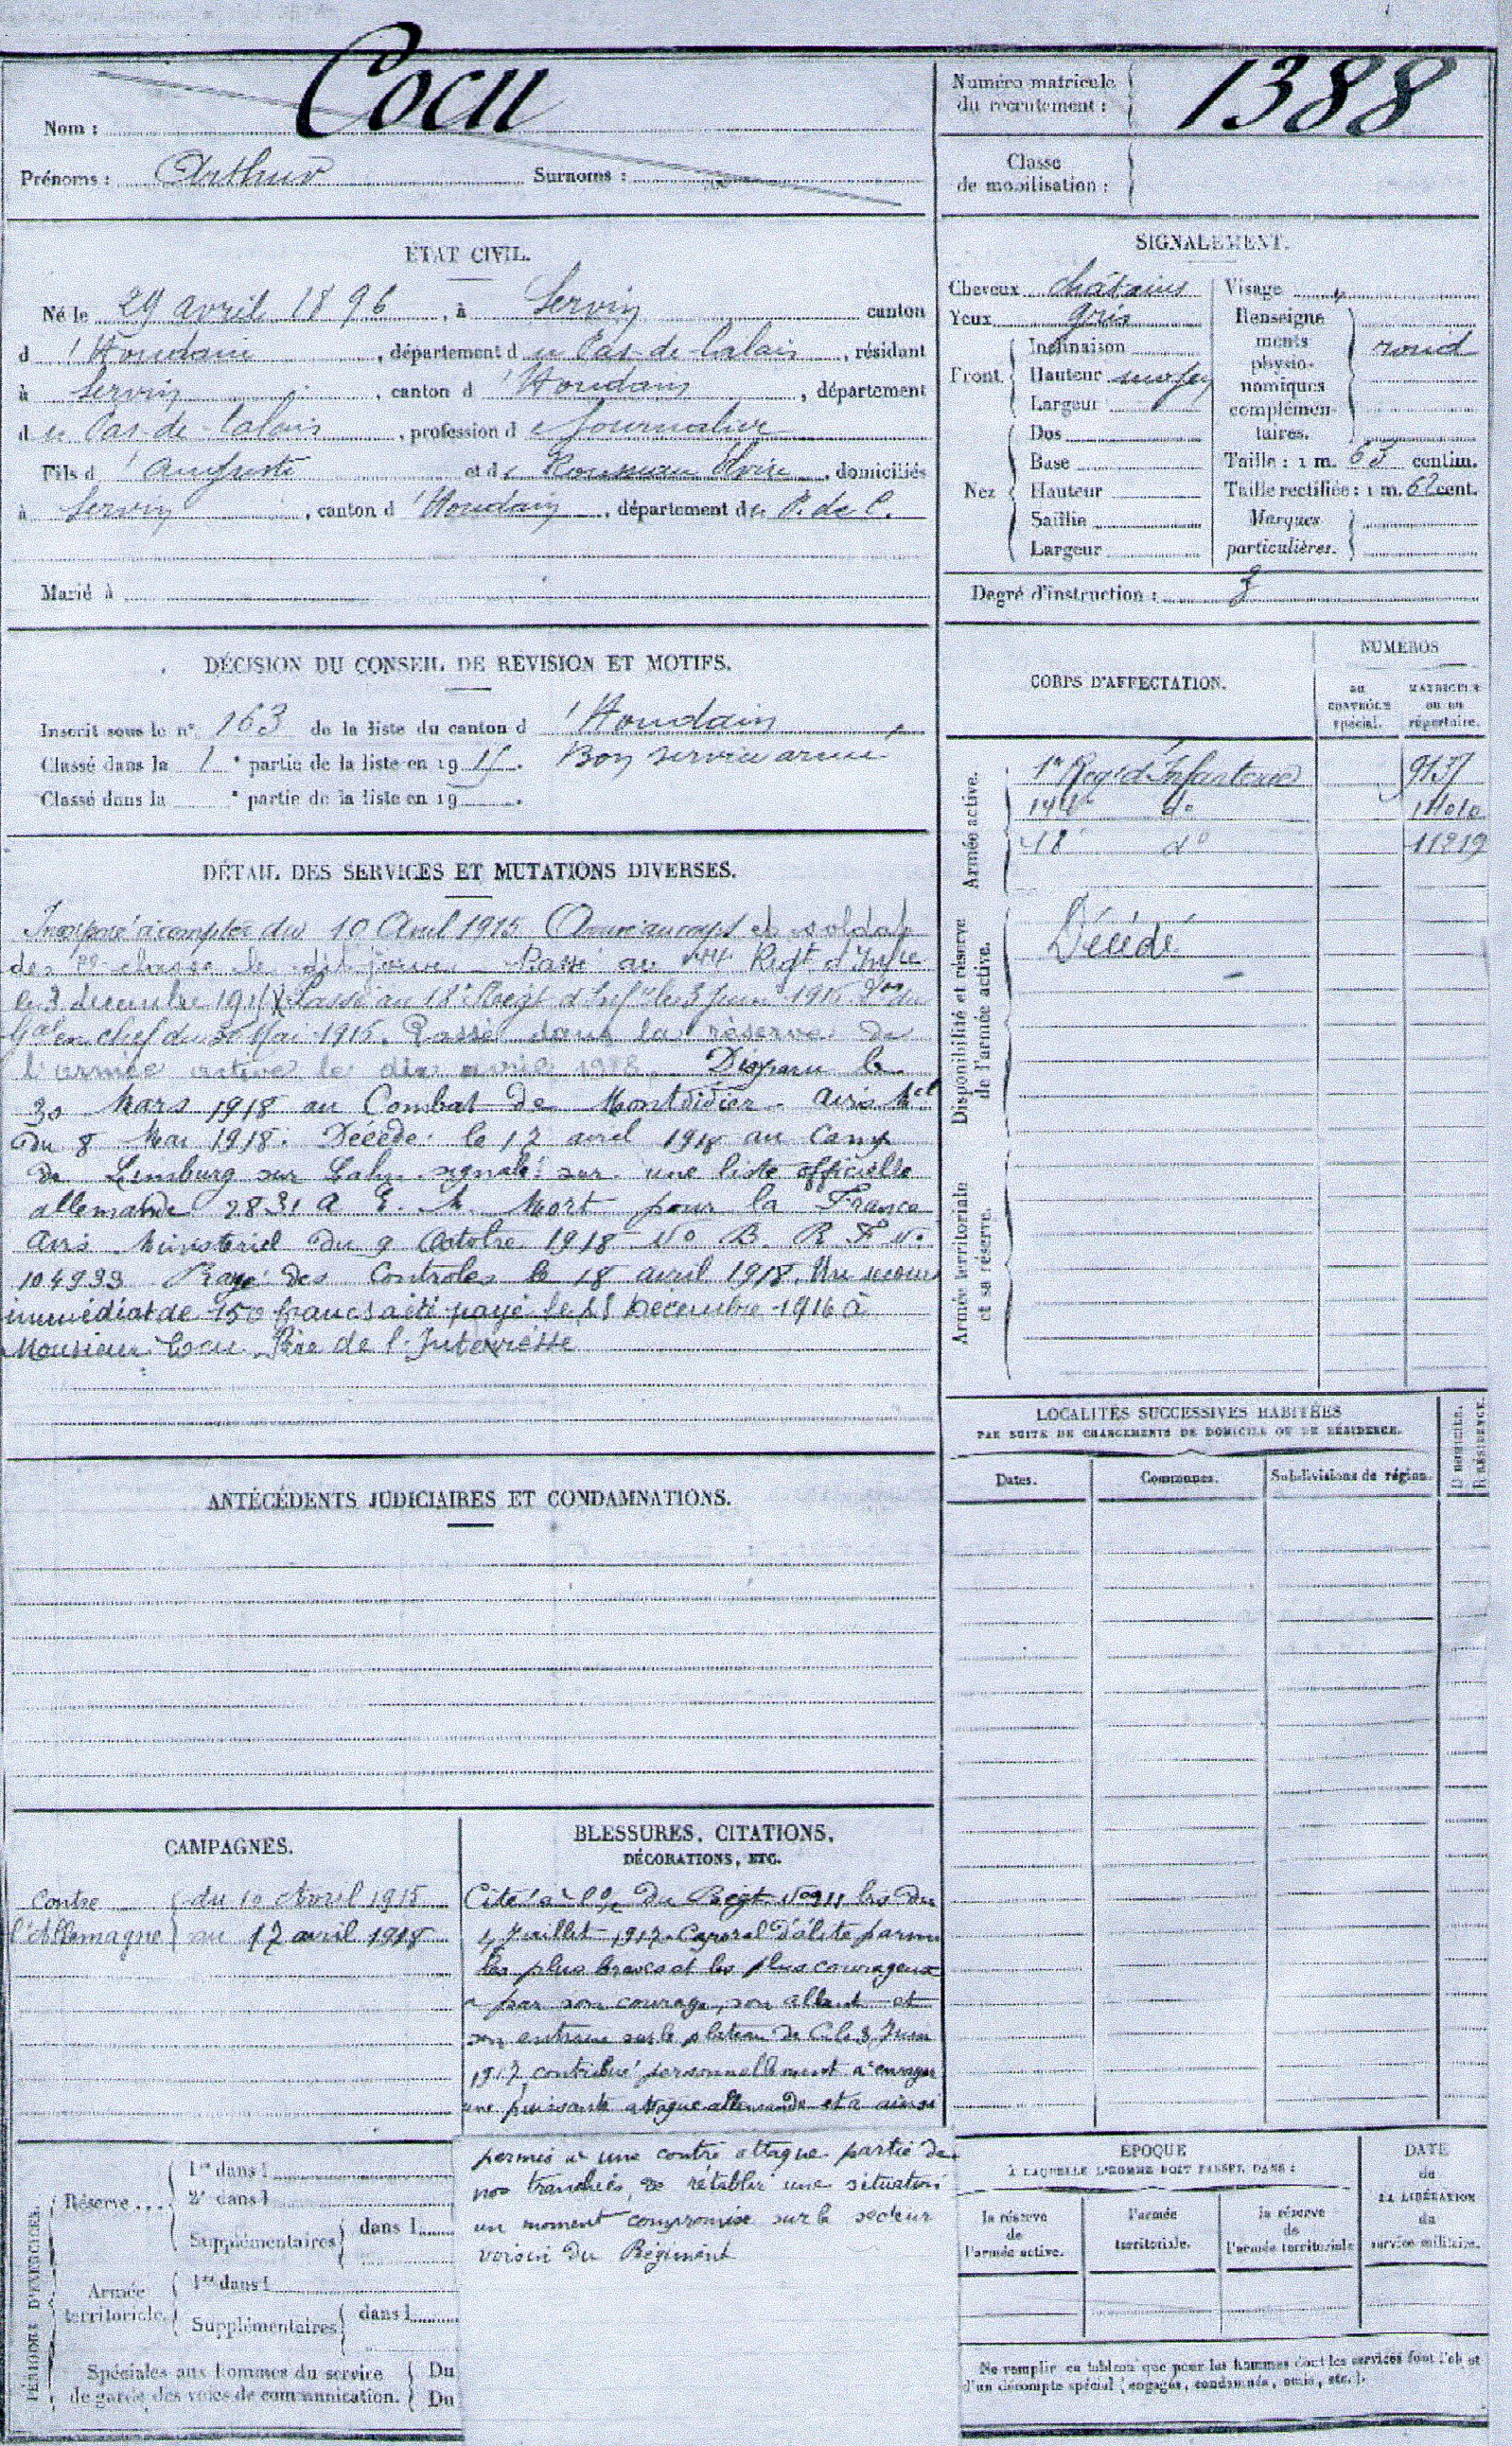 Nom : Cocu
Prénoms : Arthur Surnoms :
Numéro matricule du recrutement : 1388
Classe de mobilisation :
ÉTAT CIVIL.
Né le 29 avril 1896, à Servin canton
d'Houdain, département du Pas-de-Calais, résidant
à Servin, canton d'Houdain, département
du Pas-de-Calais, profession de Journalier
Fils d'Auguste et de Rousseau Elvire, domiciliés
à Servin, canton d'Houdain, département du P. de C.
Marié à
SIGNALEMENT.
Cheveux châtains
Yeux gris
Front
Inclinaison
Hauteur moyen
Largeur
Nez
Dos
Base
Hauteur
Saillie
Largeur
Visage
Renseignements physionomiques complémentaires. rond
Taille : 1 m. 63 centim.
Taille rectifiée : 1 m. 62 cent.
Marques particulières.
Degré d'instruction : 3
DÉCISION DU CONSEIL DE RÉVISION ET MOTIFS.
Inscrit sous le n° 163 de la liste du canton d'Houdain
Classé dans la 1e partie de la liste en 1915. Bon service armé
Classé dans la e partie de la liste en 19 .
CORPS D'AFFECTATION.
NUMÉROS
au contrôle spécial.
matricule ou au répertoire.
Armée active.
1er Regt d'Infanterie 9137
144e do
18e do 11219
Disponibilité et réserve de l'armée active.
Décédé
Armée territoriale et sa réserve.
DÉTAIL DES SERVICES ET MUTATIONS DIVERSES.
Incorporé à compter du 10 Avril 1915 Arrivé au corps et soldat
de 2e classe le dit jour. Passé au 144e Regt d'Infie
le 3 décembre 1915 Passé au 18e Regt d'Infie le 3 Juin 1916 Don du
Gal en chef du 30 Mai 1916. Passé dans la réserve de
l'armée active le dix avril 1918. Disparu le
30 Mars 1918 au Combat de Montdidier. Avis Mel
du 8 Mai 1918. Décédé le 17 avril 1918 au Camp
de Limburg sur Lahn signalé sur une liste officielle
allemande 2831 A E. M. Mort pour la France
Avis Ministériel du 9 Octobre 1918 No B. R F No
104933 Rayé des Contrôles le 18 avril 1918. Un secours
immédiat de 150 francs a été payé le Décembre 1916 à
Monsieur Cocu Père de l'Intéressé
LOCALITÉS SUCCESSIVES HABITÉES
PAR SUITE DE CHANGEMENTS DE DOMICILE OU DE RÉSIDENCE.
Dates.
Communes.
Subdivisions de région.
D DOMICILE.
R RÉSIDENCE.
ANTÉCÉDENTS JUDICIAIRES ET CONDAMNATIONS.
CAMPAGNES.
Contre l'Allemagne
du 10 Avril 1915
au 17 avril 1918
BLESSURES, CITATIONS,
DÉCORATIONS, ETC.
Cité à l'o/ du Régt No 211 bis du
4 Juillet 1917. Caporal d'élite parmi
les plus braves et les plus courageux
a par son courage, son allant et
son entrain sur le plateau de C le 3 Juin
1917 contribué personnellement à enrayer
une puissante attaque allemande et a ainsi
permis à une contre attaque partie de
nos tranchées, de rétablir une situation
un moment compromise sur le secteur
voisin du Régiment
PÉRIODES D'EXERCICES.
Réserve...
1re dans l
2e dans l
Supplémentaires
dans l
Armée territoriale.
1re dans l
Supplémentaires
dans l
Spéciales aux hommes du service
de garde des voies de communication.
Du
Du
ÉPOQUE
À LAQUELLE L'HOMME DOIT PASSER DANS :
la réserve de l'armée active.
l'armée territoriale.
la réserve de l'armée territoriale
DATE de LA LIBÉRATION du service militaire.
Ne remplir ce tableau que pour les hommes dont les services font l'objet
d'un décompte spécial (engagés, condamnés, omis, etc.).